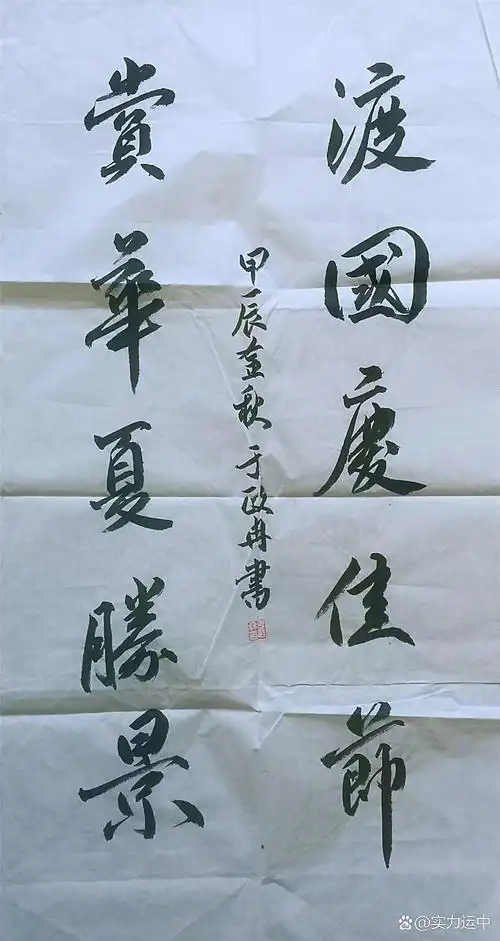 渡國慶佳節
賞華夏勝景
甲辰金秋于政冉書
@实力运中